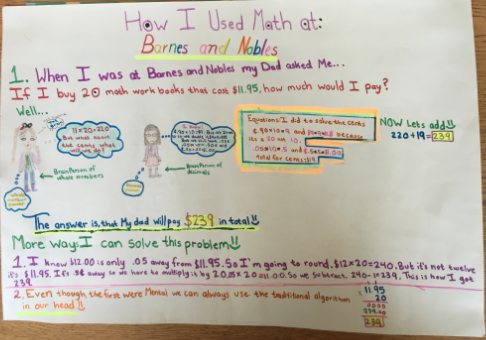 How I Used Math at:
Barnes and Nobles
1. When I was at Barnes and Nobles my Dad asked Me...
If I buy 20 math work books that cost $11.95, how much would I pay?
Well...
11×20=220
But what about the cents what will we do?
BrainPerson of whole numbers
BrainPerson of decimals
Equations I did to solve the cents
.90×10=9
because
its a 20 not 10.
.05×10=.5
total for cents: 19
NOW Lets add
220+19=239
The answer is, that My dad will pay $239 in total
More ways I can solve this problem
1. I know $12.00 is only .05 away from $11.95. So I'm going to round. $12×20=240. But it's not twelve
it's $11.95. It's 5¢ away so we have to multiply it by 20. .05×20=1.00. So we subtract 240-1=239. This is how I got
239
2. Even though the first were Mental we can always use the traditional algorithm
in our head
11.95
20
239